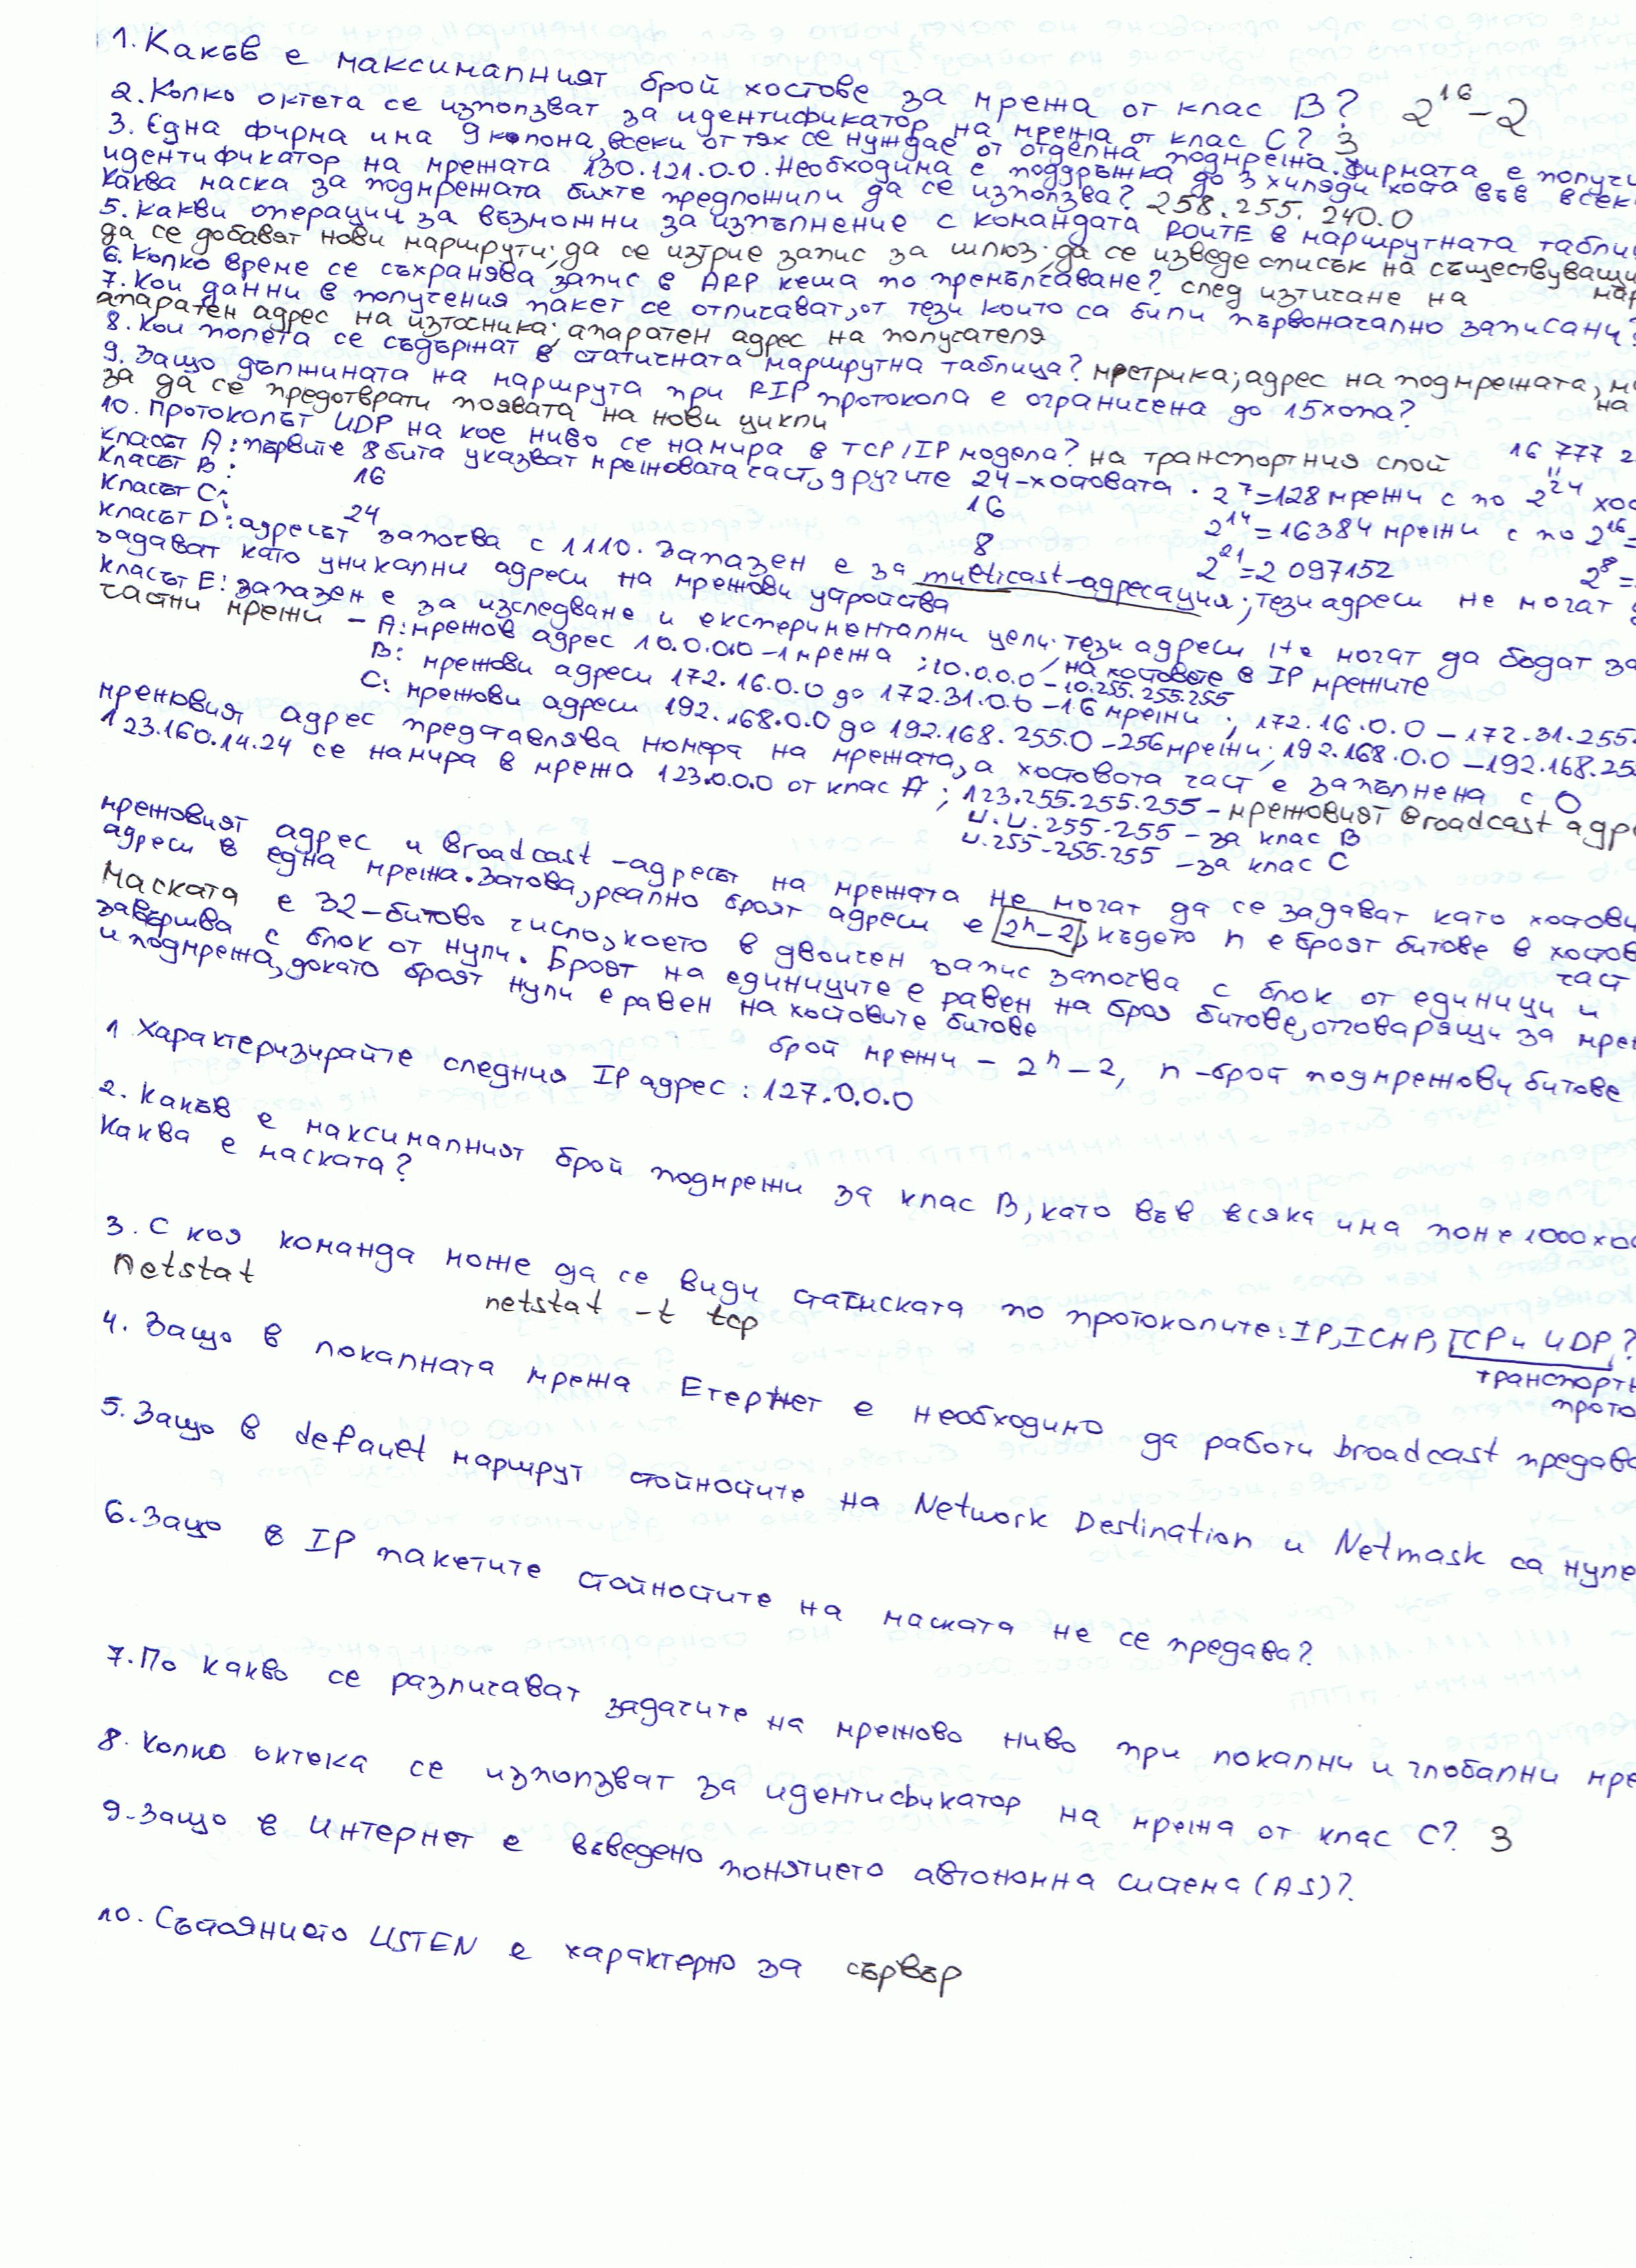 1. Какъв е максималният брой хостове за мрежа от клас B? 2^16-2
2. Колко октета се използват за идентификатор на мрежа от клас C? 3
3. Една фирма има 9 колона, всеки от тях се нуждае от отделна подмрежа. Фирмата е получи
идентификатор на мрежата 130.121.0.0. Необходима е поддръжка до 3 хиляди хоста във всек
Каква маска за подмрежата бихте предложили да се използва? 258.255.240.0
5. Какви операции за възможни за изпълнение с командата ROUTE в маршрутната табли
да се добавят нови маршрути; да се изтрие запис за шлюз; да се изведе списък на съществуващи
мар
6. Колко време се съхранява запис в ARP кеша по премълчаване? след изтичане на
7. Кои данни в получения пакет се отличават, от тези които са били първоначално записани?
апаратен адрес на източника; апаратен адрес на получателя
8. Кои полета се съдържат в статичната маршрутна таблица? метрика; адрес на подмрежата, м
на
9. Защо дължината на маршрута при RIP протокола е ограничена до 15 хопа?
за да се предотврати появата на нови цикли
10. Протоколът UDP на кое ниво се намира в TCP/IP модела? на транспортния слой
16 777 2
класът A: първите 8 бита указват мрежовата част, другите 24-хостовата. 2^7=128 мрежи с по 2^24 хос
Класът B: 16 16 2^14=16384 мрежи с по 2^16=
Класът C: 24 8 2^21=2 097152 2^8=
Класът D: адресът започва с 1110. Запазен е за multicast-адресация; тези адреси не могат
задават като уникални адреси на мрежови устройства
Класът E: запазен е за изследване и експериментални цели. тези адреси не могат да бъдат за
/ на хостовете в IP мрежите
частни мрежи - A: мрежов адрес 10.0.0.0-1 мрежа ; 10.0.0.0 - 10.255.255.255
B: мрежови адреси 172.16.0.0 до 172.31.0.0 - 16 мрежи ; 172.16.0.0 - 172.31.255
C: мрежови адреси 192.168.0.0 до 192.168.255.0 - 256 мрежи; 192.168.0.0 - 192.168.25
мрежовият адрес представлява номера на мрежата, а хостовата част е запълнена с 0
123.160.14.24 се намира в мрежа 123.0.0.0 от клас A ; 123.255.255.255 - мрежовият broadcast адр
и.и.255.255 - за клас B
и.255-255.255 - за клас C
мрежовият адрес и broadcast-адресът на мрежата не могат да се задават като хостови
адреси в една мрежа. Затова, реално броят адреси е 2^n-2, където n е броят битове в хостов
част
Маската е 32-битово число, което в двоичен запис започва с блок от единици и
завършва с блок от нули. Броят на единиците е равен на броя битове, отговарящи за мре
и подмрежа, докато броят нули е равен на хостовите битове
брой мрежи - 2^n-2, n-брой подмрежови битове
1. Характеризирайте следния IP адрес: 127.0.0.0
2. Какъв е максималният брой подмрежи за клас B, като във всяка има поне 1000 хо
Каква е маската?
3. С коя команда може да се види статиската по протоколите: IP, ICMP, TCP и UDP?
netstat netstat -t tcp
транспорт
прото
4. Защо в локалната мрежа Етернет е необходимо да работи broadcast предава
5. Защо в default маршрут стойностите на Network Destination и Netmask са нуле
6. Защо в IP пакетите стойностите на маската не се предава?
7. По какво се различават задачите на мрежово ниво при локални и глобални мре
8. Колко октека се използват за идентификатор на мрежа от клас C? 3
9. Защо в Интернет е въведено понятието автономна система (AS)?
10. Състоянието LISTEN е характерно за сървър